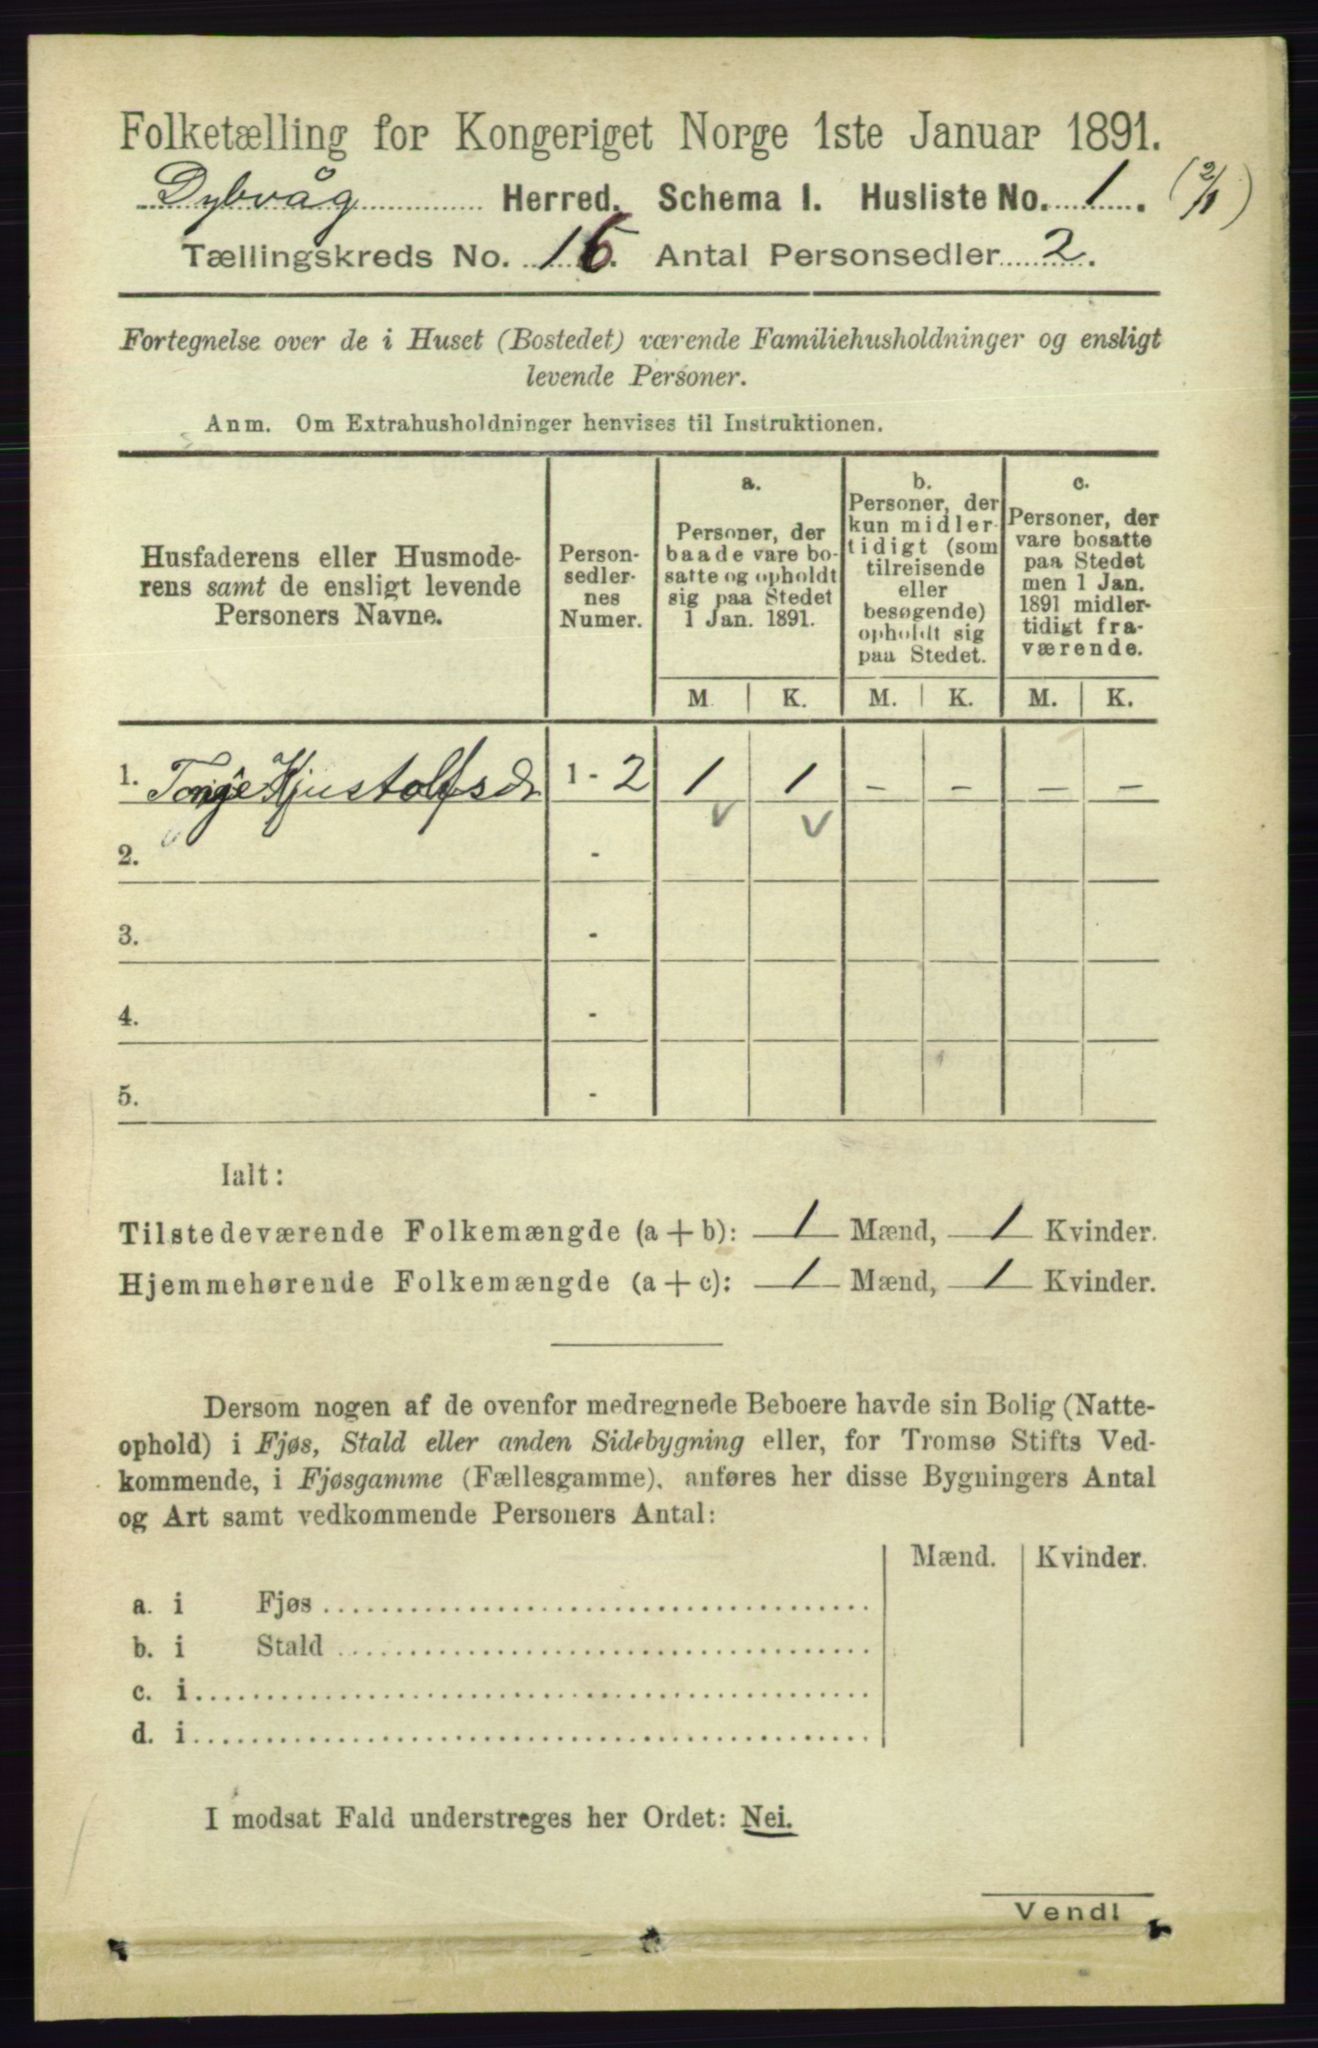 Folketælling for Kongeriget Norge 1ste Januar 1891.
Dybvåg Herred. Schema I. Husliste No. 1. (2/1)
Tællingskreds No. 16. Antal Personsedler 2.
Fortegnelse over de i Huset (Bostedet) værende Familiehusholdninger og ensligt
levende Personer.
Anm. Om Extrahusholdninger henvises til Instruktionen.
Husfaderens eller Husmode-
rens samt de ensligt levende
Personers Navne.
Person-
sedler-
nes
Numer.
a.
Personer, der
baade vare bo-
satte og opholdt
sig paa Stedet
1 Jan. 1891.
b.
Personer, der
kun midler-
tidigt (som
tilreisende
eller
besøgende)
opholdt sig
paa Stedet.
c.
Personer, der
vare bosatte
paa Stedet
men 1 Jan.
1891 midler-
tidigt fra-
værende.
M. K. M. K. M. K.
1. Tonje Hjustolfsd. 1 - 2 1 1 - - - -
2. -
3. -
4. -
5. -
Ialt:
Tilstedeværende Folkemængde (a + b): 1 Mænd, 1 Kvinder.
Hjemmehørende Folkemængde (a + c): 1 Mænd, 1 Kvinder.
Dersom nogen af de ovenfor medregnede Beboere havde sin Bolig (Natte-
ophold) i Fjøs, Stald eller anden Sidebygning eller, for Tromsø Stifts Ved-
kommende, i Fjøsgamme (Fællesgamme), anføres her disse Bygningers Antal
og Art samt vedkommende Personers Antal:
Mænd. Kvinder.
a. i Fjøs
b. i Stald
c. i
d. i
I modsat Fald understreges her Ordet: Nei.
Vend!